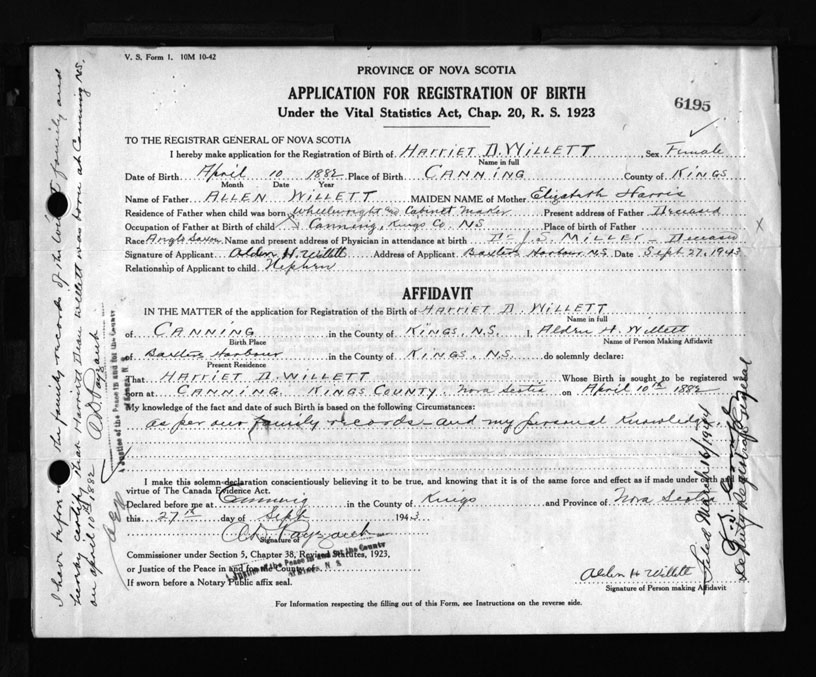 V. S. Form 1. 10M 10-42
PROVINCE OF NOVA SCOTIA
APPLICATION FOR REGISTRATION OF BIRTH
Under the Vital Statistics Act, Chap. 20, R. S. 1923
6195
TO THE REGISTRAR GENERAL OF NOVA SCOTIA
I hereby make application for the Registration of Birth of HARRIET D. WILLETT, Sex Female
Name in full
Date of Birth April 10 1882 Place of Birth CANNING County of KINGS
Month Date Year
Name of Father ALLEN WILLETT MAIDEN NAME of Mother Elizabeth Harris
Residence of Father when child was born Wheelwright & Cabinet Maker Present address of Father Deceased
Occupation of Father at Birth of child Canning, Kings Co. N.S. Place of birth of Father X
Race Anglo Saxon Name and present address of Physician in attendance at birth Dr J. S. MILLER - Deceased
Signature of Applicant Alden H. Willett Address of Applicant Baxters Harbour, N.S. Date Sept 27, 1943
Relationship of Applicant to child Nephew
AFFIDAVIT
IN THE MATTER of the application for Registration of the Birth of HARRIET D. WILLETT
Name in full
of CANNING in the County of KINGS, N.S. I, Alden H. Willett
Birth Place Name of Person Making Affidavit
of Baxters Harbour in the County of KINGS, N.S. do solemnly declare:
Present Residence
That HARRIET D. WILLETT Whose Birth is sought to be registered was
born at CANNING KINGS COUNTY, Nova Scotia on April 10th 1882
My knowledge of the fact and date of such Birth is based on the following Circumstances:
as per our family records and my personal Knowledge.
I make this solemn declaration conscientiously believing it to be true, and knowing that it is of the same force and effect as if made under oath and
virtue of The Canada Evidence Act.
Declared before me at Canning in the County of Kings and Province of Nova Scotia
this 27th day of Sept 1943.
Signature of
Commissioner under Section 5, Chapter 38, Revised Statutes, 1923,
or Justice of the Peace in and for the County of
A Justice of the Peace in and for the County of Kings, N. S.
If sworn before a Notary Public affix seal.
Alden H Willett
Signature of Person making Affidavit
For Information respecting the filling out of this Form, see Instructions on the reverse side.
I have before me the family records of the Willett family and
hereby certify that Harriet Dean Willett was born at Canning N.S.
on April 10th 1882
A Justice of the Peace in and for the County of Kings, N. S.
Filed March 16/1944
Deputy Registrar General